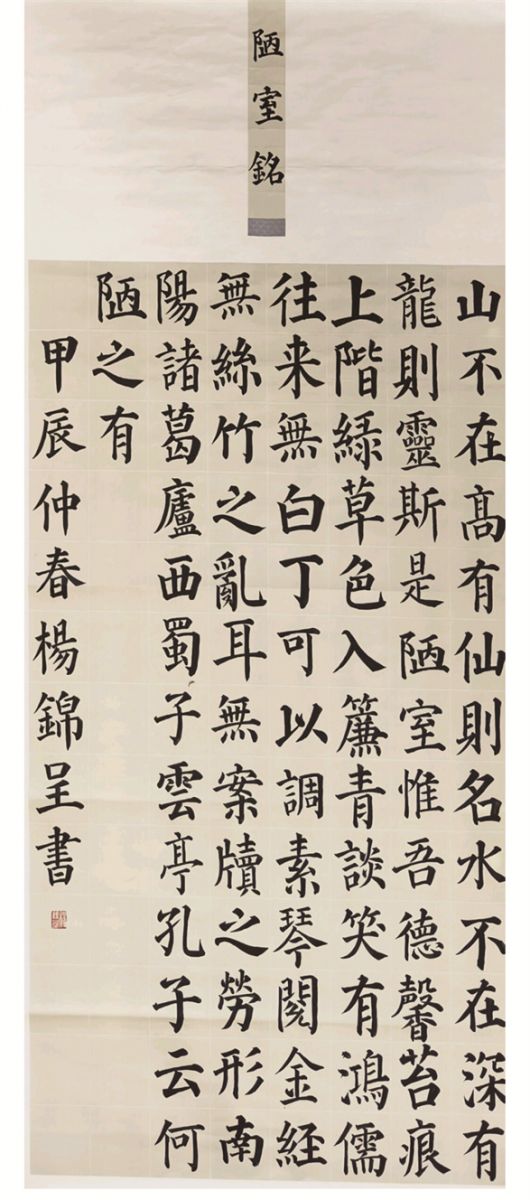 陋室銘
山不在髙有仙則名水不在深有
龍則靈斯是陋室惟吾德馨苔痕
上階緑草色入簾青談笑有鴻儒
往来無白丁可以調素琴閱金経
無絲竹之亂耳無案牘之勞形南
陽諸葛廬西蜀子雲亭孔子云何
陋之有
甲辰仲春楊錦呈書